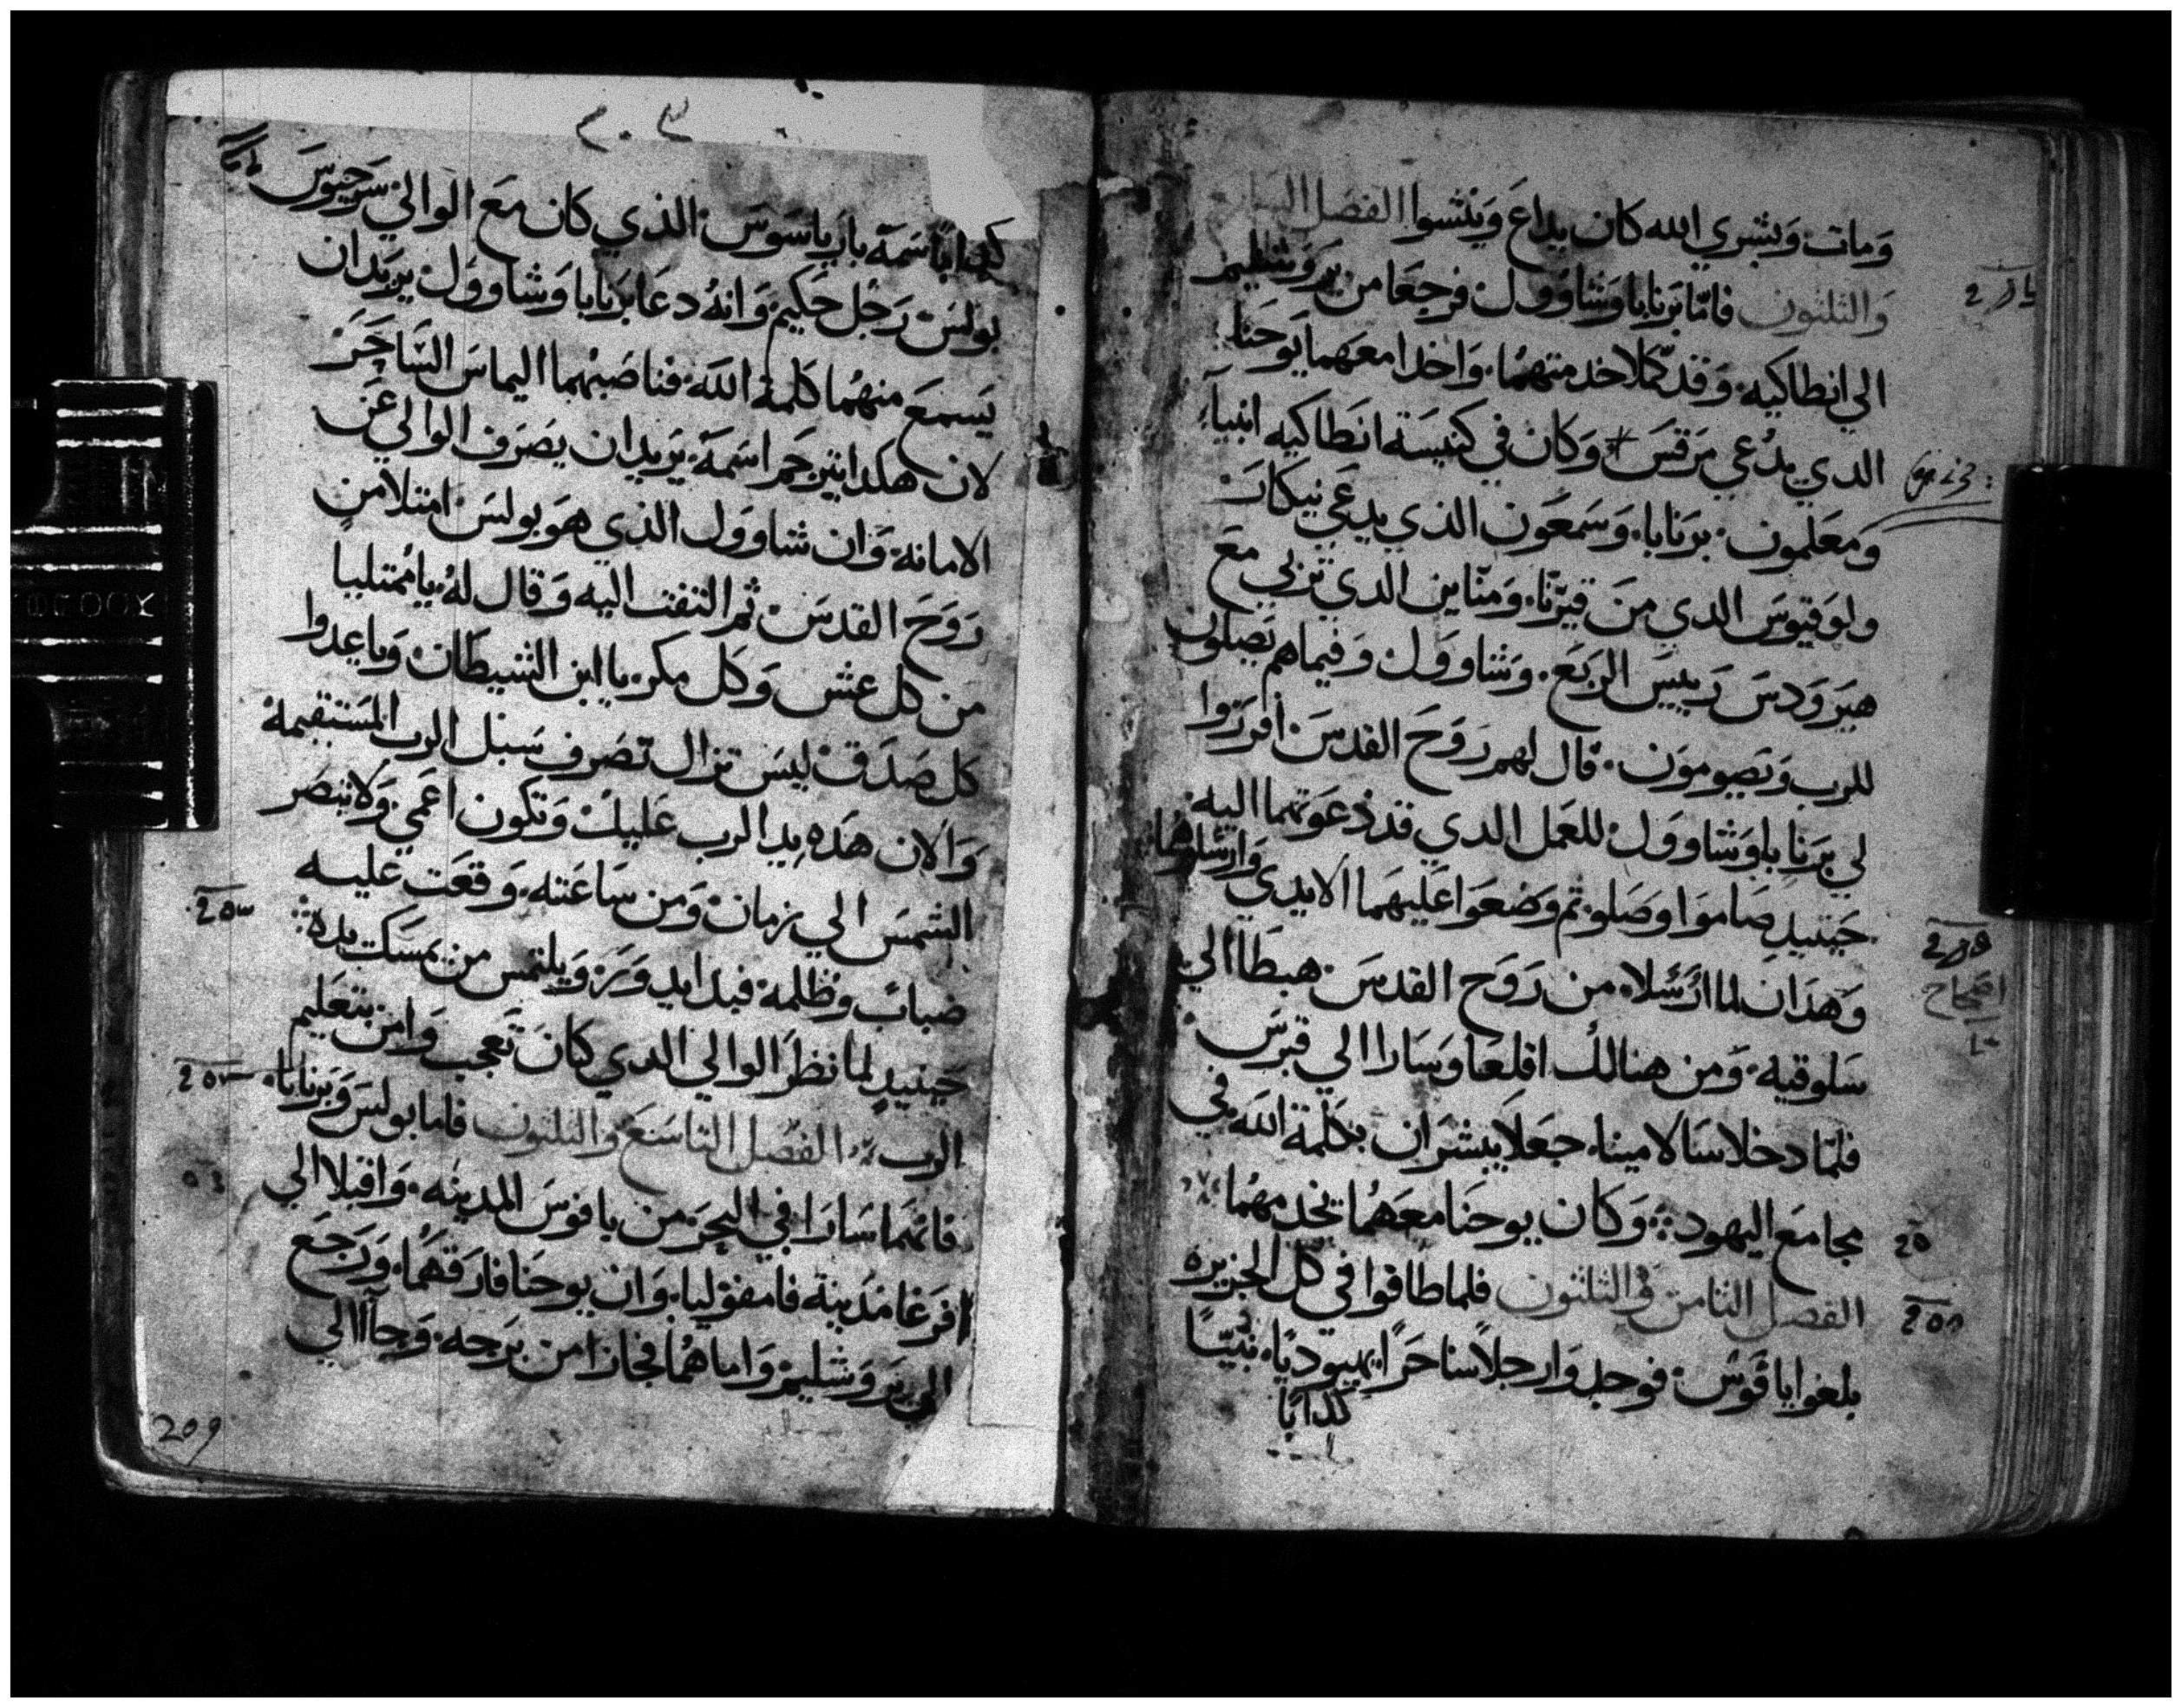 ومات وبشري الله كان يداع وينشوا الفصل
والثلثون فامّا برنابا وشاوول فرجعا من يروشليم
الي انطاكيه وقد كملا خدمتهما واخدا معهما يوحنا
الدي يدعي مرقس + وكان في كنيسة انطاكيه انبياء
ومعلمون برنابا وسمعون الذي يدعي نيكان
ولوقيوس الدي من قيرنا ومناين الدي تربي مع
هيرودس رييس الربع وشاوول وفيماهم يصلون
للرب ويصومون قال لهم روح القدس افرزوا
لي برنابا وشاوول للعمل الدي قد دعوتهما اليه
حينيد صاموا وصلو ثم وضعوا عليهما الايدي وارسلوهما
وهدان لما ارسلا من روح القدس هبطا الي
سلوقيه ومن هنالك اقلعا وسارا الي قبرس
فلمّا دخلا سالامينا جعلا يبشران بكلمة الله في
مجامع اليهود وكان يوحنا معهما تخدمهما
الفصل الثامن والثلثون فلما طافوا في كل الجزيره
بلغوا يافوس فوجدوا رجلا ساحرا يهوديا نبيّا
كدابا
٢٠٣
كدابا اسمه بارياسوس الذي كان مع الوالي سرجيوس
بولس رجل حكيم وانه دعا برنابا وشاوول يريد ان
يسمع منهما كلمة الله فناصبهما اليماس الساحر
لان هكدا يترجم اسمه يريد ان يصرف الوالي عن
الامانه وان شاوول الذي هو بولس امتلا من
روح القدس ثم التفت اليه وقال له يا ممتليا
من كل عش وكل مكر يا ابن الشيطان ويا عدوا
كل صدق ليس تزال تصرف سبل الرب المستقيمه
والان هده يد الرب عليك وتكون اعمي ولا تبصر
الشمس الي زمان ومن ساعته وقعت عليه
ضباب وظلمه فبدا يدور ويلتمس من يمسك يده
حينيد لما نظر الوالي الدي كان تعجب وامن بتعليم
الرب الفصل التاسع والثلثون فاما بولس وبرنابا
فانهما سارا في البحر من يافوس المدينه واقبلا الي
افرغا مدينة فامفوليا وان يوحنا فارقهما ورجع
الي يروشليم واما هما فجازا من برجه وجاآ الي
209